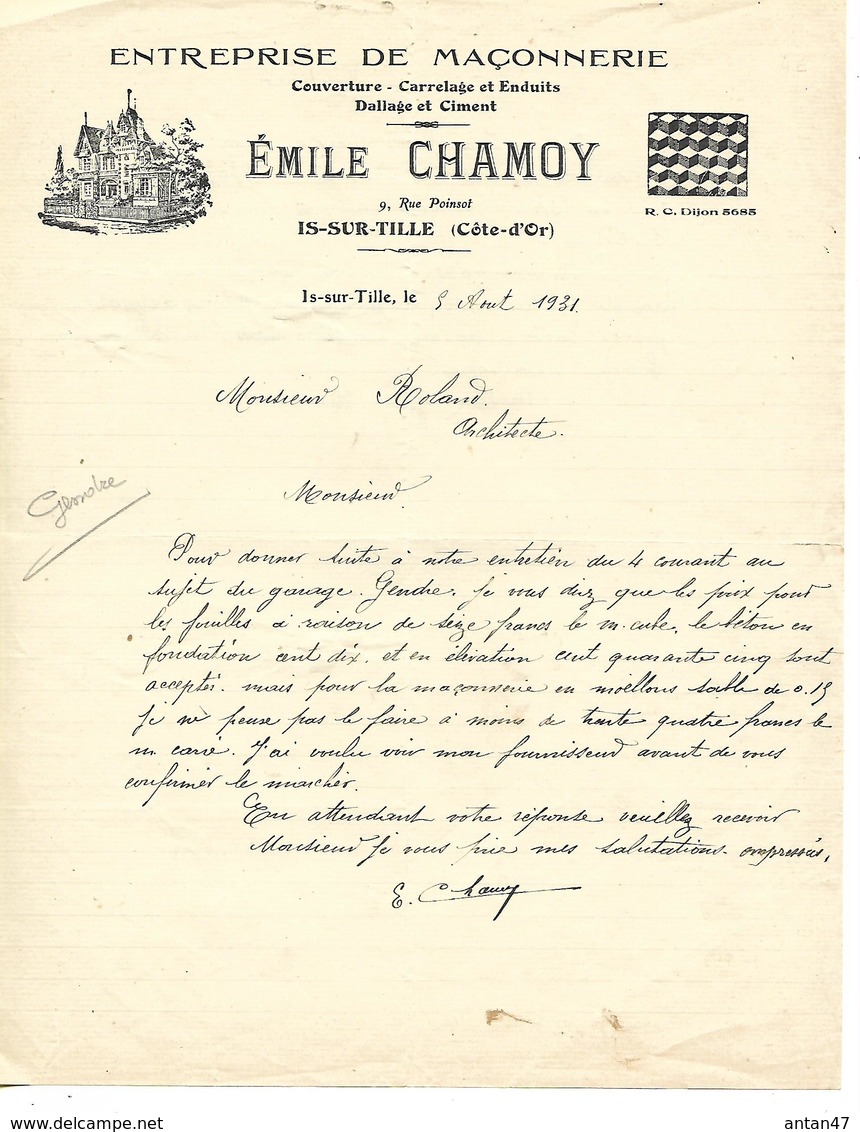 ENTREPRISE DE MAÇONNERIE
Couverture - Carrelage et Enduits
Dallage et Ciment
ÉMILE CHAMOY
9, Rue Poinsot
IS-SUR-TILLE (Côte-d'Or)
R. C. Dijon 5685
Is-sur-Tille, le 5 Aout 1931.
Monsieur Roland.
Architecte.
Gendre
Monsieur.
Pour donner suite à notre entretien du 4 courant au
sujet du garage. Gendre. je vous dirz que les prix pour
les fouilles à raison de seize francs le m. cube. le béton en
fondation cent dix. et en élévation cent quarante cinq sont
acceptés. mais pour la maçonnerie en moëllons sable de 0.15
je ne pense pas le faire à moins de trente quatre francs le
m. carré. J'ai voulu voir mon fournisseur avant de vous
confirmer le marcher.
En attendant votre réponse veuillez recevoir
Monsieur je vous prie mes salutations empressées.
E. Chamoy
antan47